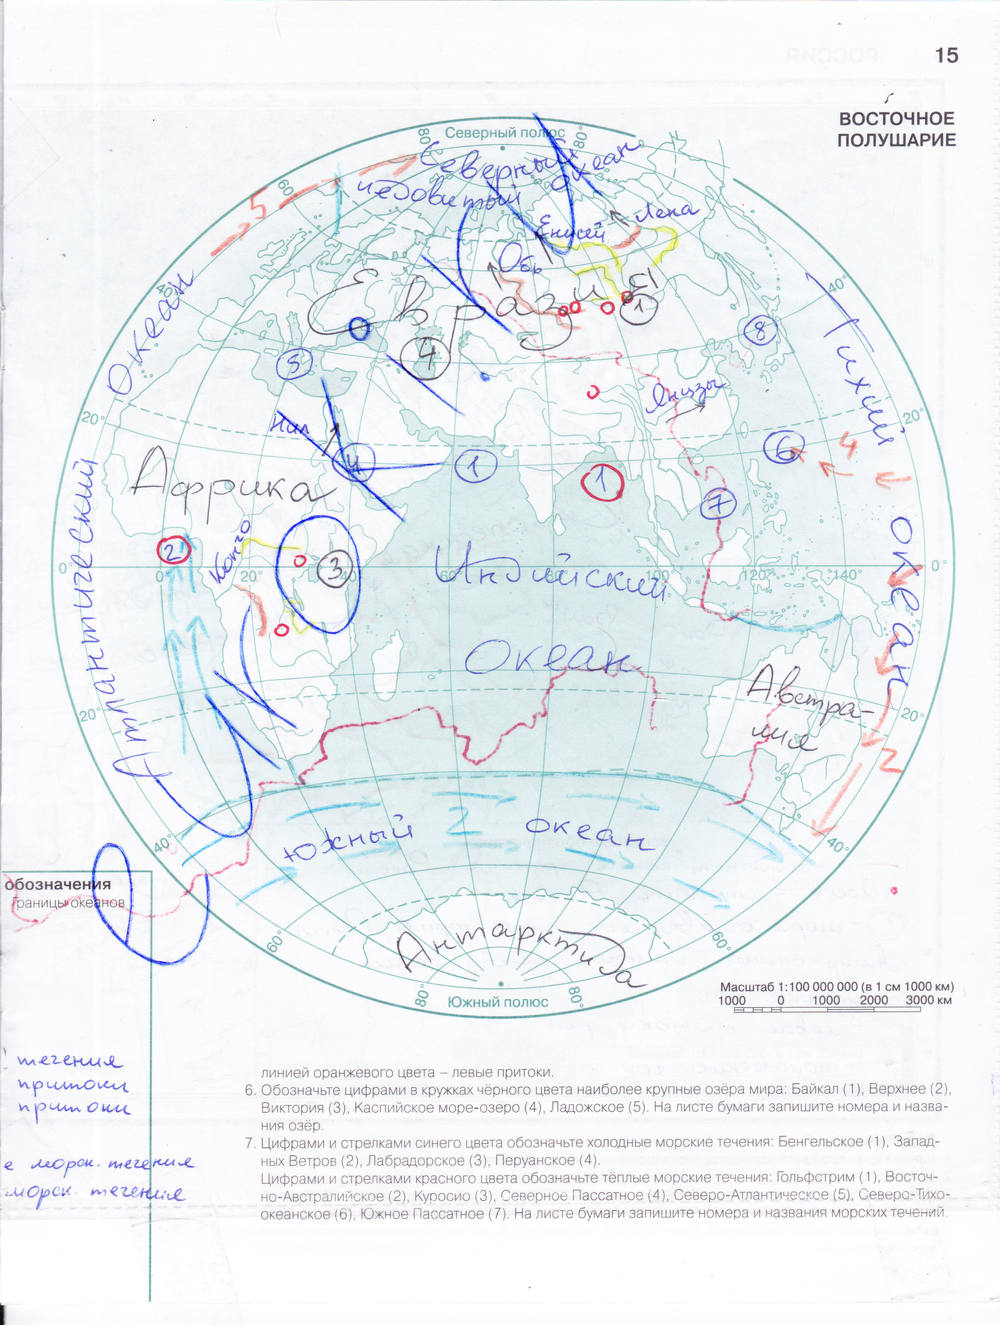 15
ВОСТОЧНОЕ
ПОЛУШАРИЕ
Северный полюс
80°
80°
60
Северный
Ледовитый океан
5
Енисей
Лена
Обь
Евразия
1
40°
40°
Океан
Тихий океан
5
4
8
Янцзы
20°
20°
Нил
4
1
1
6
4
7
Африка
Атлантический
2
Конго
3
0°
0°
20°
60°
100°
120°
140°
0°
Индийский
Океан
Австра-
лия
20°
20°
2
40°
40°
Южный 2 океан
обозначения
границы океанов
Антарктида
60°
60°
80°
80°
Южный полюс
Масштаб 1:100 000 000 (в 1 см 1000 км)
1000 0 1000 2000 3000 км
течения
притоки
притоки
е морск. течения
морск. течения
линией оранжевого цвета – левые притоки.
6. Обозначьте цифрами в кружках чёрного цвета наиболее крупные озёра мира: Байкал (1), Верхнее (2),
Виктория (3), Каспийское море-озеро (4), Ладожское (5). На листе бумаги запишите номера и назва-
ния озёр.
7. Цифрами и стрелками синего цвета обозначьте холодные морские течения: Бенгельское (1), Запад-
ных Ветров (2), Лабрадорское (3), Перуанское (4).
Цифрами и стрелками красного цвета обозначьте тёплые морские течения: Гольфстрим (1), Восточ-
но-Австралийское (2), Куросио (3), Северное Пассатное (4), Северо-Атлантическое (5), Северо-Тихо-
океанское (6), Южное Пассатное (7). На листе бумаги запишите номера и названия морских течений.